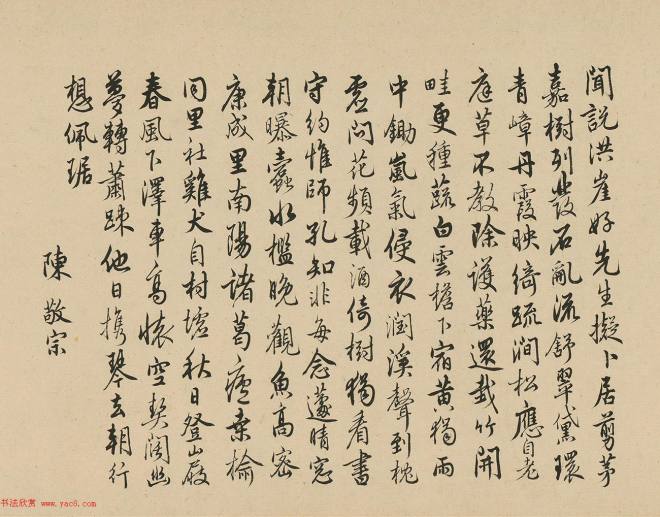 聞說洪崖好先生擬卜居剪茅
嘉樹列發石亂流舒翠黛環
青嶂丹霞映綺疏澗松應自老
庭草不教除護藥還栽竹開
畦更種蔬白雲檐下宿黃獨雨
中鋤嵐氣侵衣潤溪聲到枕
虛問花頻載酒倚樹獨看書
守約惟師孔知非每念蘧晴窓
朝曝蠹水檻晚觀魚高密
康成里南陽諸葛廬桑榆
同里社雞犬自村墟秋日登山屐
春風下澤車高懷空契闊幽
夢轉蕭踈他日攜琴去朝行
想佩琚
陳敬宗
书法欣赏 www.yac8.com